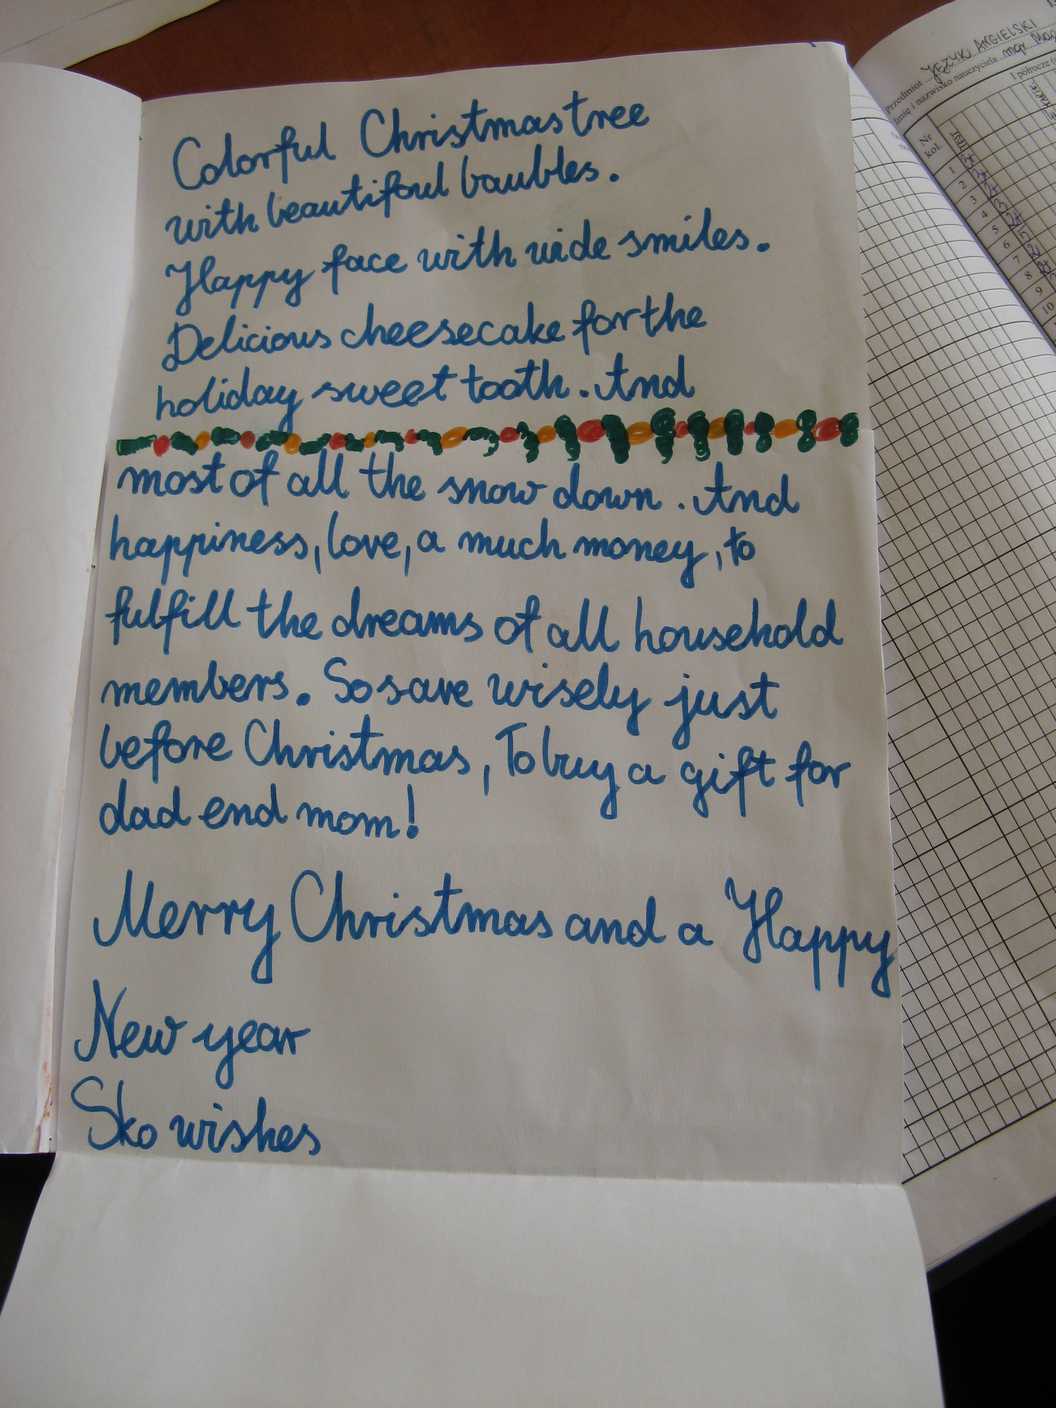 Colorful Christmas tree
with beautifoul baubles.
Happy face with wide smiles.
Delicious cheesecake for the
holiday sweet tooth. And
most of all the snow down. And
happiness, love, a much money, to
fulfill the dreams of all household
members. So save wisely just
before Christmas, To buy a gift for
dad end mom!
Merry Christmas and a Happy
New year
Sko wishes
Przedmiot JĘZYK ANGIELSKI
Imię i nazwisko nauczyciela mgr
I półrocze
Nr
kol.
1
2
3
4
5
6
7
8
9
10